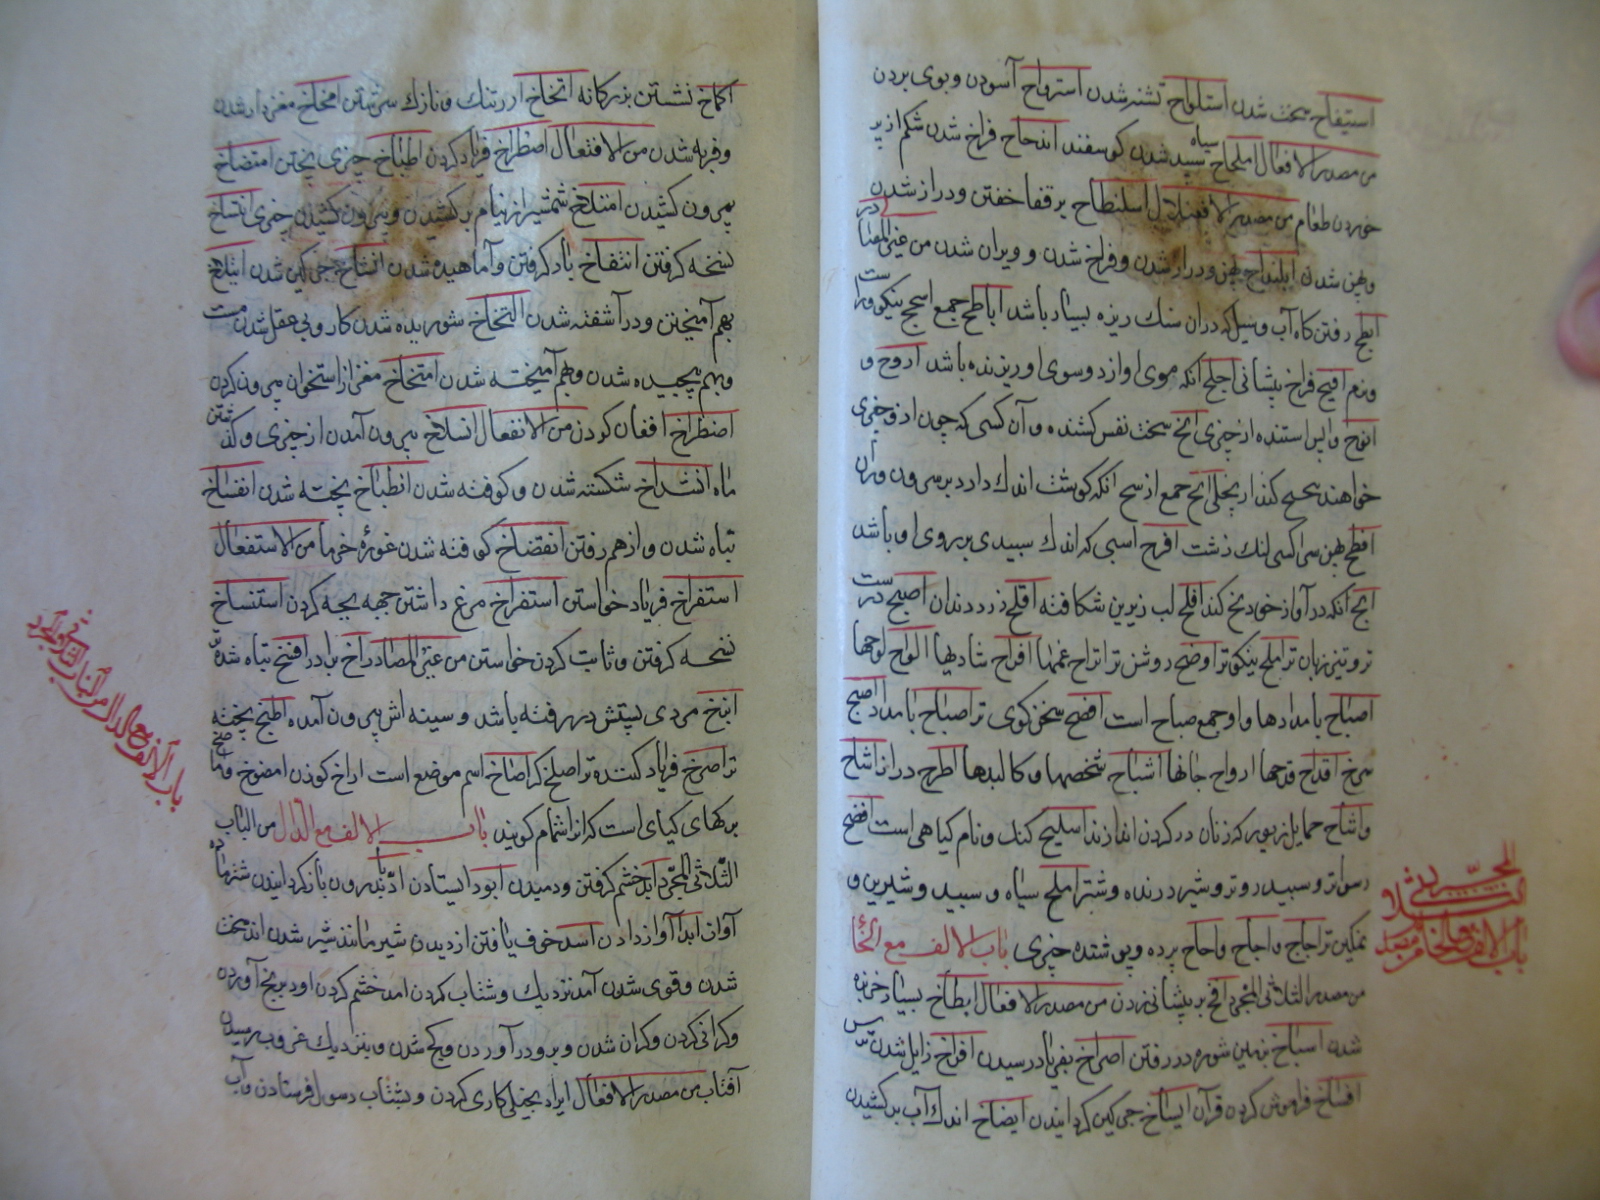 استیفاح سخت شدن استلواح تشنه شدن استرواح آسودن و بوی بردن
من مصدر الافعال املحاح سیاه سپید شدن گوسفند اندحاح فراخ شدن شکم از پر
خوردن طعام من مصدر الافعنلال اسلنطاح بر قفا خفتن و دراز شدن
و پهن شدن ابلنداح پهن و دراز شدن و فراخ شدن و ویران شدن من غیر المصادر
ابطح رفتن گاه آب و سیل که در آن سنک ریزه بسیار باشد اباطح جمع اسجح نیکو و راست
و نرم افیح فراخ پیشانی اجلح آنکه موی او از دو سوی او ریزنده باشد اروح و
انوح واپس استنده از چیزی انح سخت نفس کشنده و آن کسی که چون از و چیزی
خواهند بحیح کند از بخیلی ارسح آنکه گوشت اندک دارد بر سرون و ران
افطح پهن سر اکسح لنک زشت اقرح اسبی که اندک سپیدی بر روی او باشد
ابح آنکه در آواز خود بخ کند افلح لب زیرین شکافته اقلح زرد دندان اصبح درست
تر و تیز زبان تر املح نیکوتر اوضح روشن تر اتراح غمها افراح شادیها الواح لوحها
اصباح بامدادها و او جمع صباح است افصح سخن گوی تر اصباح بامداد اصبح
سرخ اقداح قدحها ارواح جانها اشباح شخصها و کالبدها اطرح دراز اشاح
و اشاح حمایل از زیور که زنان در گردن اندازند اسلیح کنک و نام گیاهی است افضح
رسواتر و سپید روتر و شیر درنده و شتر املح سیاه و سپید و شیرین و
نمکین تر اجاح و اجاح و احاح پرده و پوشنده چیزی باب الالف مع الخاء
من مصدر الثلاثی المجرد افح بر پیشانی زدن من مصدر الافعال ابطاخ بسیار خربزه
شدن اسباخ بزمین شوره در رفتن اصراخ بفریاد رسیدن افراخ زایل شدن ترس
افساخ فراموش کردن قرآن ایساخ چرکین گردانیدن ایضاخ اندک آب برکشیدن
باب الالف و الخاء من مصدر
الثلاثی
المجرد
اکماخ نشستن بزرگانه اتخاخ آرد تنک و نازک سرشتن امخاخ مغزدار شدن
و فربه شدن من الافتعال اصطراخ فریاد کردن اطباخ چیزی پختن امتصاخ
بیرون کشیدن امتلاخ شمشیر از نیام برکشیدن و بیرون کشیدن چیزی انتساخ
نسخه گرفتن انتفاخ باد گرفتن و آماهیده شدن اتساخ چرکین شدن ایتلاخ
بهم آمیختن و در آشفته شدن التخاخ شوریده شدن کار و بی عقل شدن مست
و بهم پیچیده شدن و بهم آمیخته شدن امتخاخ مغز از استخوان بیرون کردن
اصطراخ افغان کردن من الانفعال انسلاخ بیرون آمدن از چیزی و گذشتن
ماه انشداخ شکسته شدن و کوفته شدن انطباخ پخته شدن انفساخ
تباه شدن و از هم رفتن انفضاخ کوفته شدن غوره خرما من الاستفعال
استفراخ فریاد خواستن استفراخ مرغ داشتن جهه بچه کردن استنساخ
نسخه گرفتن و ثابت کردن خواستن من غیر المصادر اخ برادر افتخ تباه شده
ابزخ مردی پشتش در رفته باشد و سینه اش بیرون آمده اطبخ پخته
تر اصرخ فریاد کننده تر اصلخ کر اضاخ اسم موضع است اراخ گوزن امضوخ
برگهای گیاهی است که آنرا ثمام گویند باب الالف مع الدال من الباب
الثلاثی المجرد ابد خشم گرفتن و رمیدن ابود ایستادن اد بآندرون بازگردانیدن شتر ماده
آواز ابدا آواز دادن اسد خوف یافتن از دیدن شیر مانند شیر شدن اد سخت
شدن و قوی شدن آمد نزدیک و شتاب کردن امد خشم کردن اود برنج آوردن
و گرانی کردن و گران شدن و برو درآوردن و کج شدن و بنزدیک غروب رسیدن
آفتاب من مصدر الافعال ابراد بخیلی کاری کردن و بشتاب رسول فرستادن و بآب